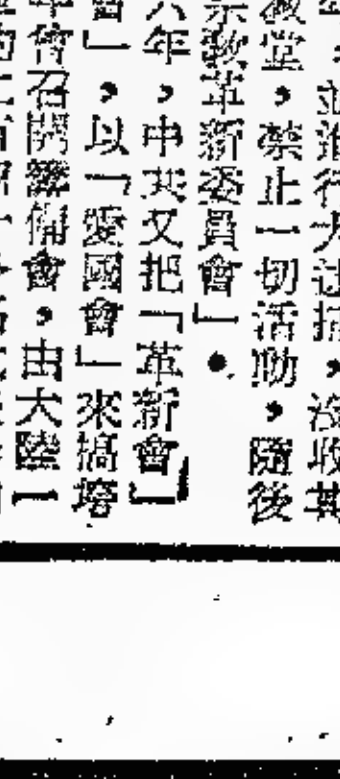 ，並進行大逮捕，沒收其
教堂，禁止一切活動，隨後
宗教革新委員會」。
六年，中共又把「革新會」
會」，以「愛國會」來搞垮
會召開籌備會，由大陸一